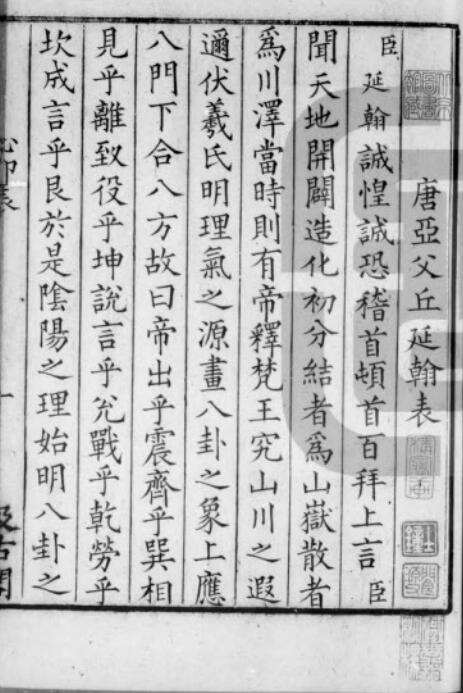 唐亞父丘延翰表
臣延翰誠惶誠恐稽首頓首百拜上言臣
聞天地開闢造化初分結者爲山嶽散者
爲川澤當時則有帝釋梵王究山川之遐
邇伏羲氏明理氣之源畫八卦之象上應
八門下合八方故曰帝出乎震齊乎巽相
見乎離致役乎坤說言乎兊戰乎乾勞乎
坎成言乎艮於是陰陽之理始明八卦之